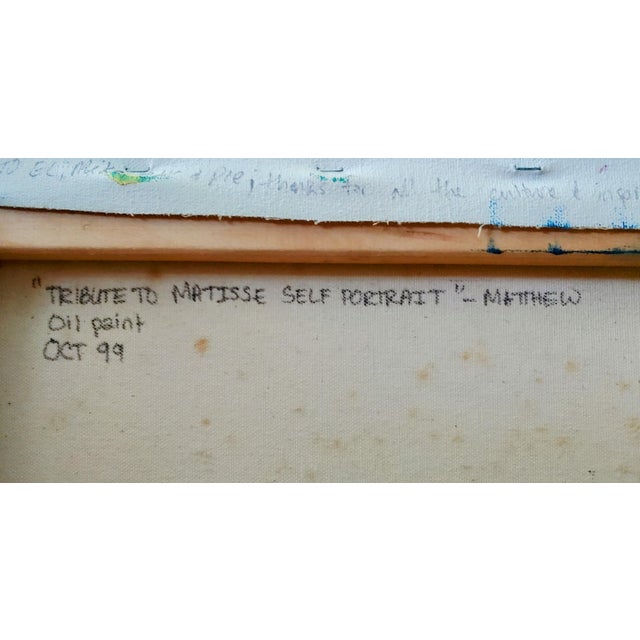 thanks for all the culture & inspi
"TRIBUTE TO MATISSE SELF PORTRAIT" - MATTHEW
Oil paint
OCT 99